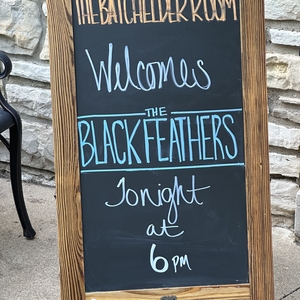 THE BATCHELDER ROOM
Welcomes
THE
BLACK FEATHERS
Tonight
at
6 PM